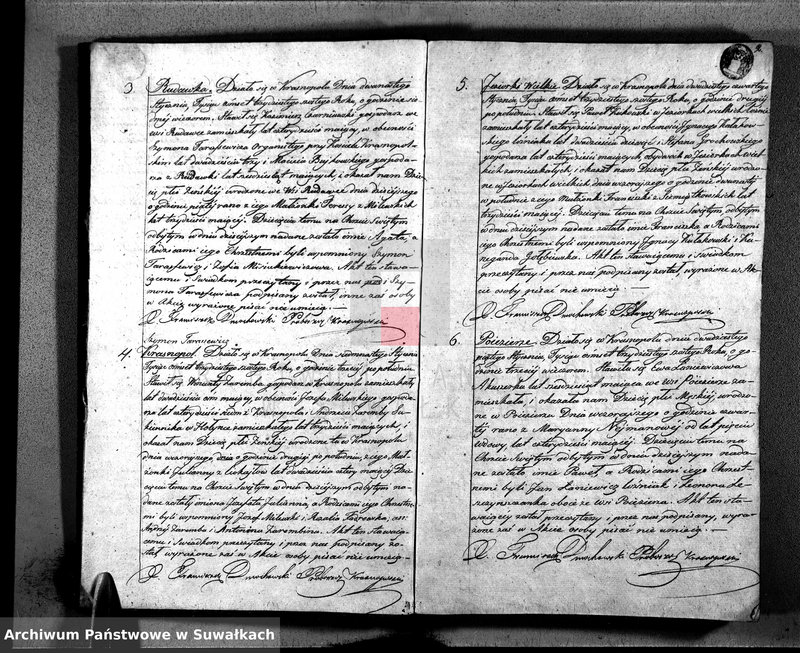 3 Rudawka. Działo się w Krasnopolu Dnia dwunastego
Stycznia, Tysiąc ośmset trzydziestego szóstego Roku, o godzinie siódmej
wieczorem. Stawił się Kazimierz Czerniecki gospodarz we
wsi Rudawce zamieszkały lat czterdzieści mający, w obecności
Szymona Tarasiewicza Organistego przy Kościele Krasnopolskim
lat dwadzieścia trzy i Macieja gospodarza
z Rudawki lat mających, i okazał nam Dziecię
płci Żeńskiej urodzone we Wsi Rudawce dnia dzisiejszego
o godzinie piątej rano z jego Małżonki Teressy z Milewskich
lat trzydzieści mającej. Dziecięciu temu na Chrzcie Świętym
odbytym w dniu dzisiejszym nadane zostało imie Agata, a
Rodzicami jego Chrzestnemi byli wspomniony Szymon
Tarasiewicz i Zofia Misiukiewiczowa. Akt ten stawającemu
i Świadkom przeczytany i przez nas i Szymona
Tarasiewicza podpisany został, inne zaś osoby
w Akcie wyrażone pisać nie umieją.
X. Franciszek Dmochowski Proboszcz Krasnopolski
Szymon Tarasewicz
4. Krasnopol. Działo się w Krasnopolu Dnia siedemnastego Stycznia
Tysiąc ośmset trzydziestego szóstego Roku, o godzinie trzeciej po południu
Stawił się Wincenty Zaremba gospodarz w Krasnopolu zamieszkały
lat dwadzieścia ośm mający, w obecności Józefa Milewskiego gospodarza
lat czterdzieści z Krasnopola i Andrzeja Zaremby
w zamieszkałego lat trzydzieści mających, i
okazał nam Dziecię płci Żeńskiej urodzone tu w Krasnopolu
dnia wczorajszego o godzinie drugiej po południu, z jego Małżonki
Julianny z lat dwadzieścia cztery mającej Dziecięciu
temu na Chrzcie Świętym odbytym w dniu dzisiejszym nadane
zostały imiona Józefata Julianna, a Rodzicami jego Chrzestnemi
byli wspomniony Józef Milewski i Rozalia
Andrzej Zaremba i Antonina Zarembina. Akt ten stawającemu
i Świadkom przeczytany i przez nas podpisany został
wyrażone zaś w Akcie osoby pisać nie umieją.
X. Franciszek Dmochowski Proboszcz Krasnopolski
2.
5. Jeziorki Wielkie. Działo się w Krasnopolu dnia dwudziestego czwartego
Stycznia, Tysiąc ośmset trzydziestego szóstego Roku, o godzinie drugiej
po południu. Stawił się Paweł w Jeziorkach wielkich
zamieszkały lat czterdzieści mający, w obecności Ignacego Kułakowskiego
leśniaka lat i Stefana Grochowskiego
gospodarza lat czterdzieści mających, obydwóch w Jeziorkach wielkich
zamieszkałych, i okazał nam Dziecię płci Żeńskiej urodzone
w Jeziorkach wielkich dnia wczorajszego o godzinie dwunastej
w południe z jego Małżonki Franciszki z lat
trzydzieści mającej. Dziecięciu temu na Chrzcie Świętym odbytym
w dniu dzisiejszym nadane zostało imie Franciszka, a Rodzicami
jego Chrzestnemi byli wspomniony Ignacy Kułakowski i Kunegunda
Gołębiewska. Akt ten Stawającemu i Świadkom
przeczytany i przez nas podpisany został, wyrażone w Akcie
osoby pisać nie umieją.
X. Franciszek Dmochowski Proboszcz Krasnopolski
6. Pocieiene. Działo się w Krasnopolu dnia dwudziestego
piątego Stycznia, Tysiąc ośmset trzydziestego szóstego Roku, o godzinie
trzeciej wieczorem. Stawiła się Ewa Łaniewiczowa
Akuszerka lat sześdziesiąt mająca we wsi zamieszkała,
i okazała nam Dziecię płci Męskiej urodzone
w Dnia wczorajszego o godzinie czwartej
rano z Maryanny Nejmanowej od lat pięciu
Wdowy, lat czterdzieści mającej. Dziecięciu temu na
Chrzcie Świętym odbytym w dniu dzisiejszym nadane
zostało imie Paweł, a Rodzicami jego Chrzestnemi
byli Jan Łaniewicz leśniak i
oboje ze wsi. Akt ten stawającej
został przeczytany i przez nas podpisany, wyrażone
zaś w Akcie osoby pisać nie umieją.
X. Franciszek Dmochowski Proboszcz Krasnopolski
Archiwum Państwowe w Suwałkach